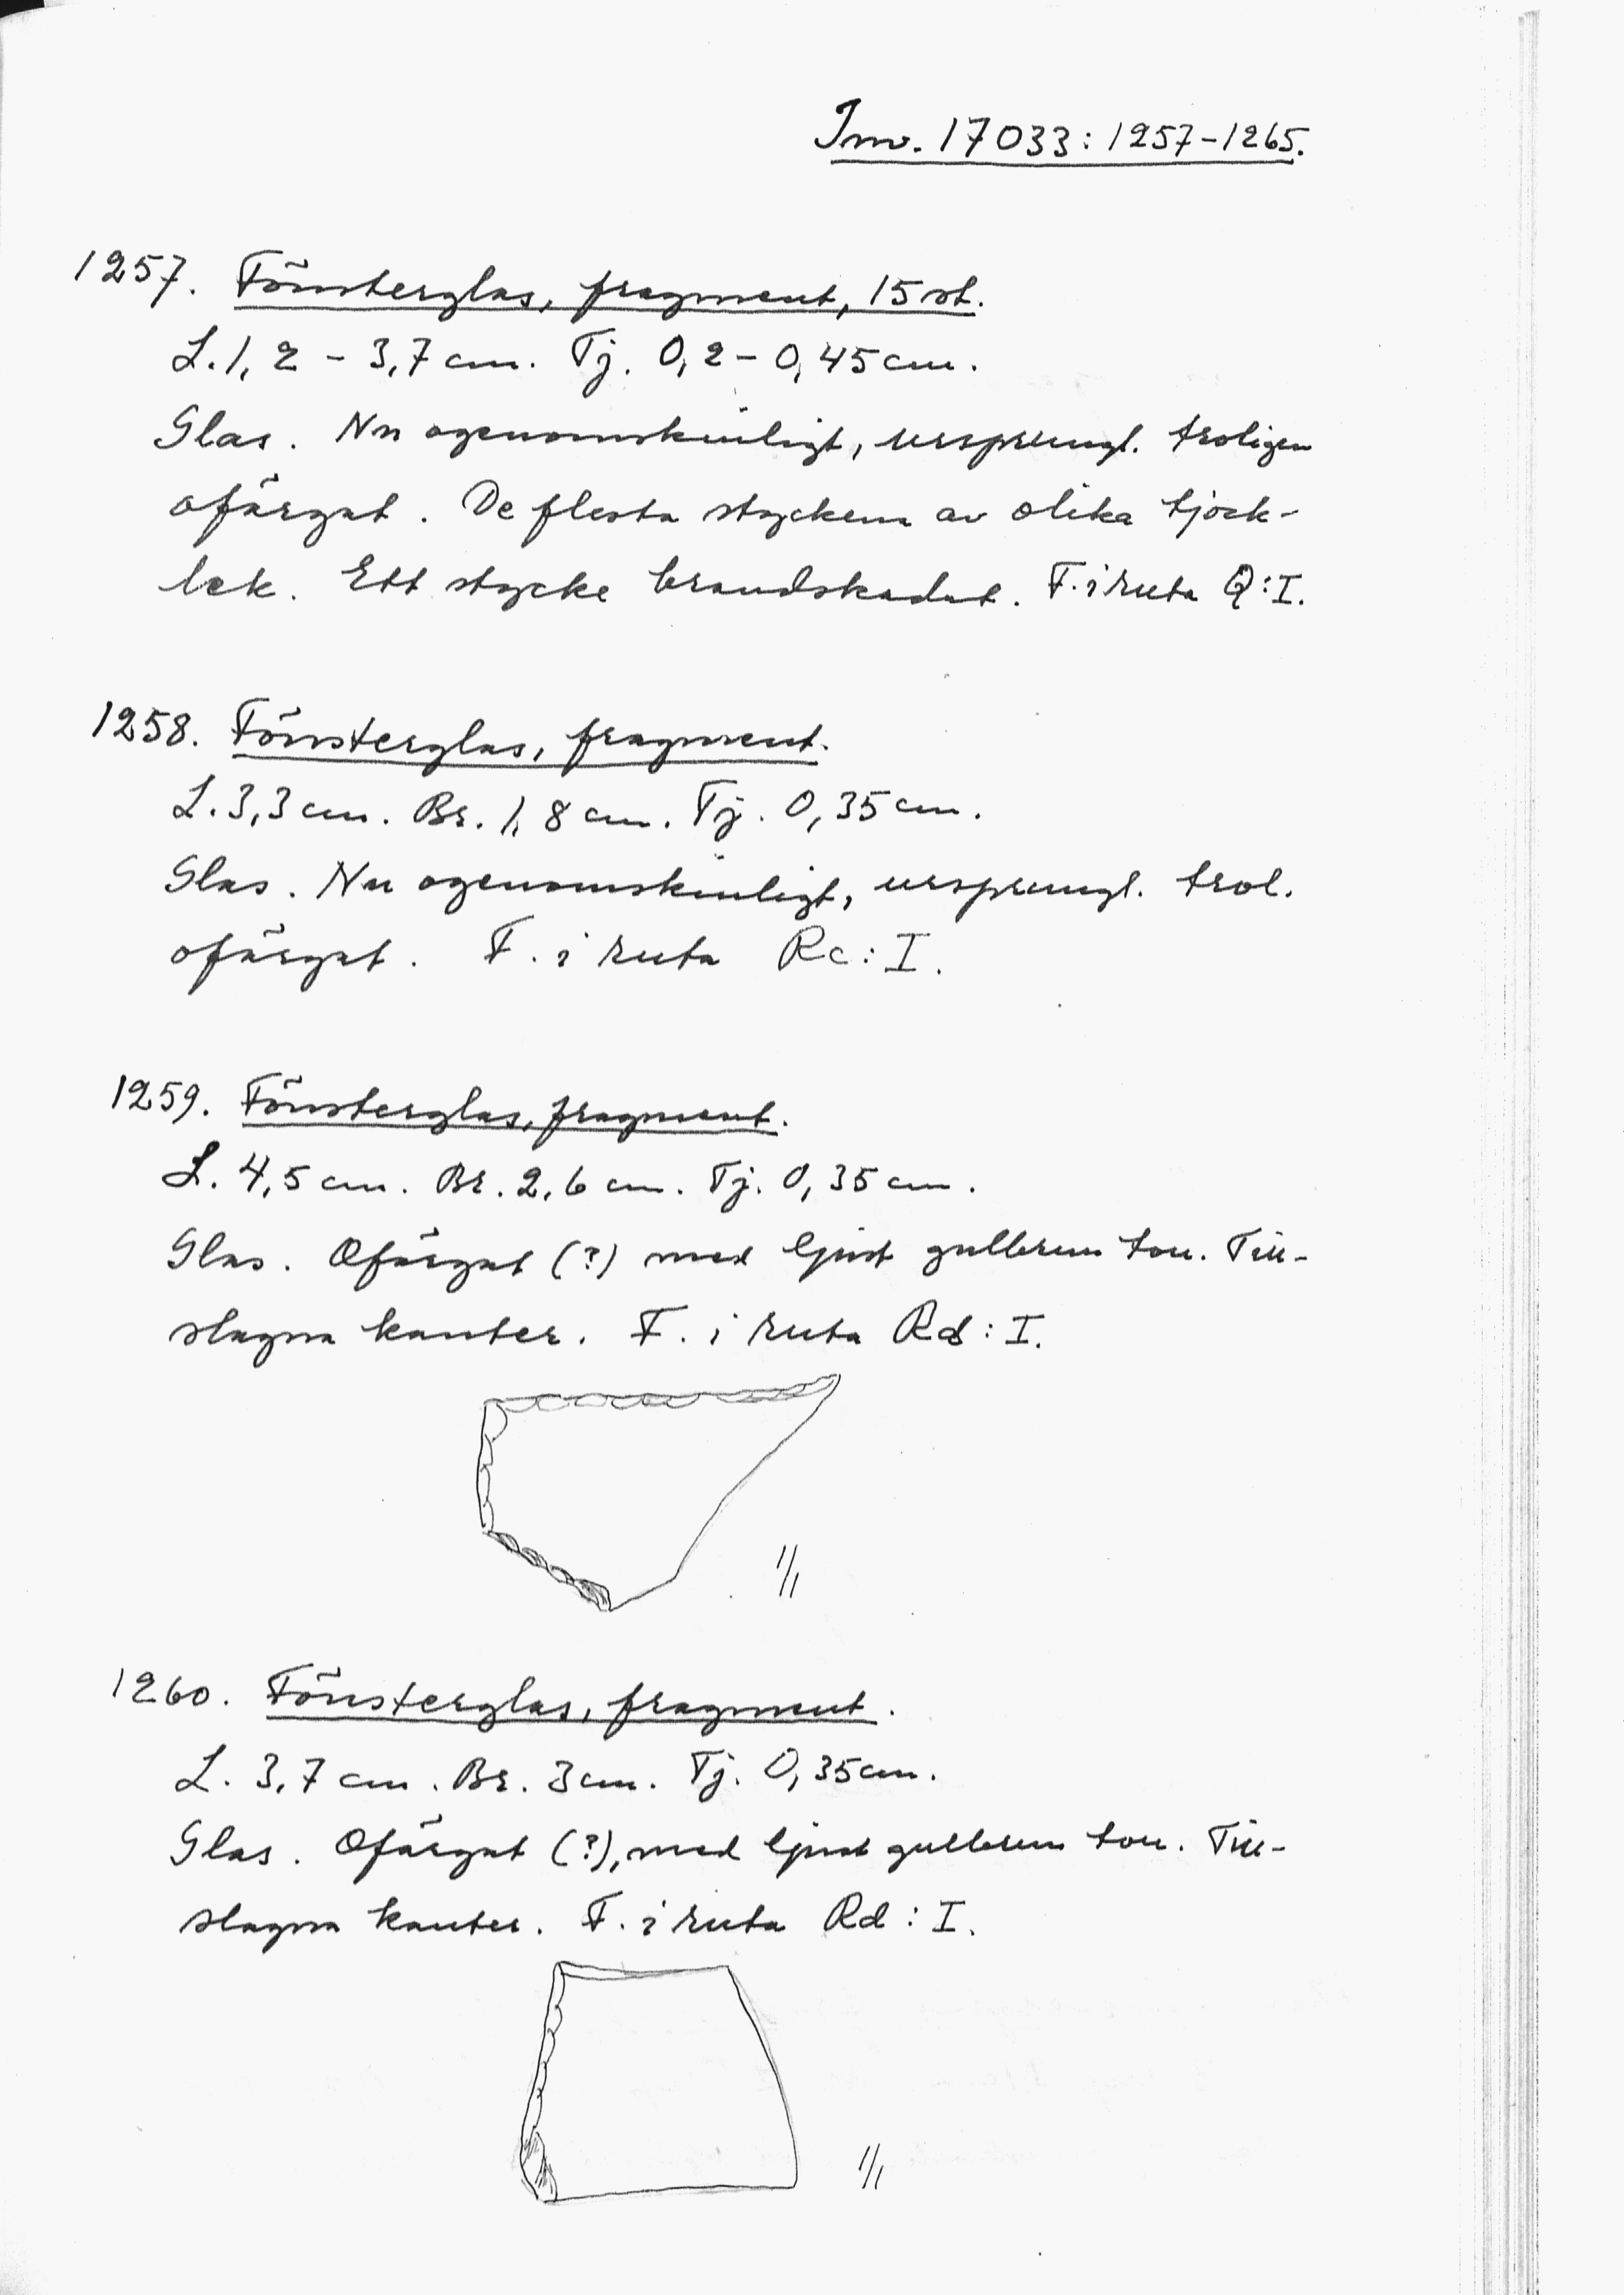 Inv. 17033:1257-1265.
1257. Fönsterglas, fragment, 15 st.
L. 1,2 - 3,7 cm. Tj. 0,2 - 0,45 cm.
Glas. Nu ogenomskinligt, ursprungl. troligen
ofärgat. De flesta stycken av olika tjock-
lek. Ett stycke brandskadat. F. i ruta Q:I.
1258. Fönsterglas, fragment.
L. 3,3 cm. Br. 1,8 cm. Tj. 0,35 cm.
Glas. Nu ogenomskinligt, ursprungl. trol.
ofärgat. F. i ruta Rc:I.
1259. Fönsterglas, fragment.
L. 4,5 cm. Br. 2,6 cm. Tj. 0,35 cm.
Glas. Ofärgat (?) med ljust gulbrun ton. Till-
slagna kanter. F. i ruta Rd:I.
1/1
1260. Fönsterglas, fragment.
L. 3,7 cm. Br. 3 cm. Tj. 0,35 cm.
Glas. Ofärgat (?), med ljust gulbrun ton. Till-
slagna kanter. F. i ruta Rd:I.
1/1